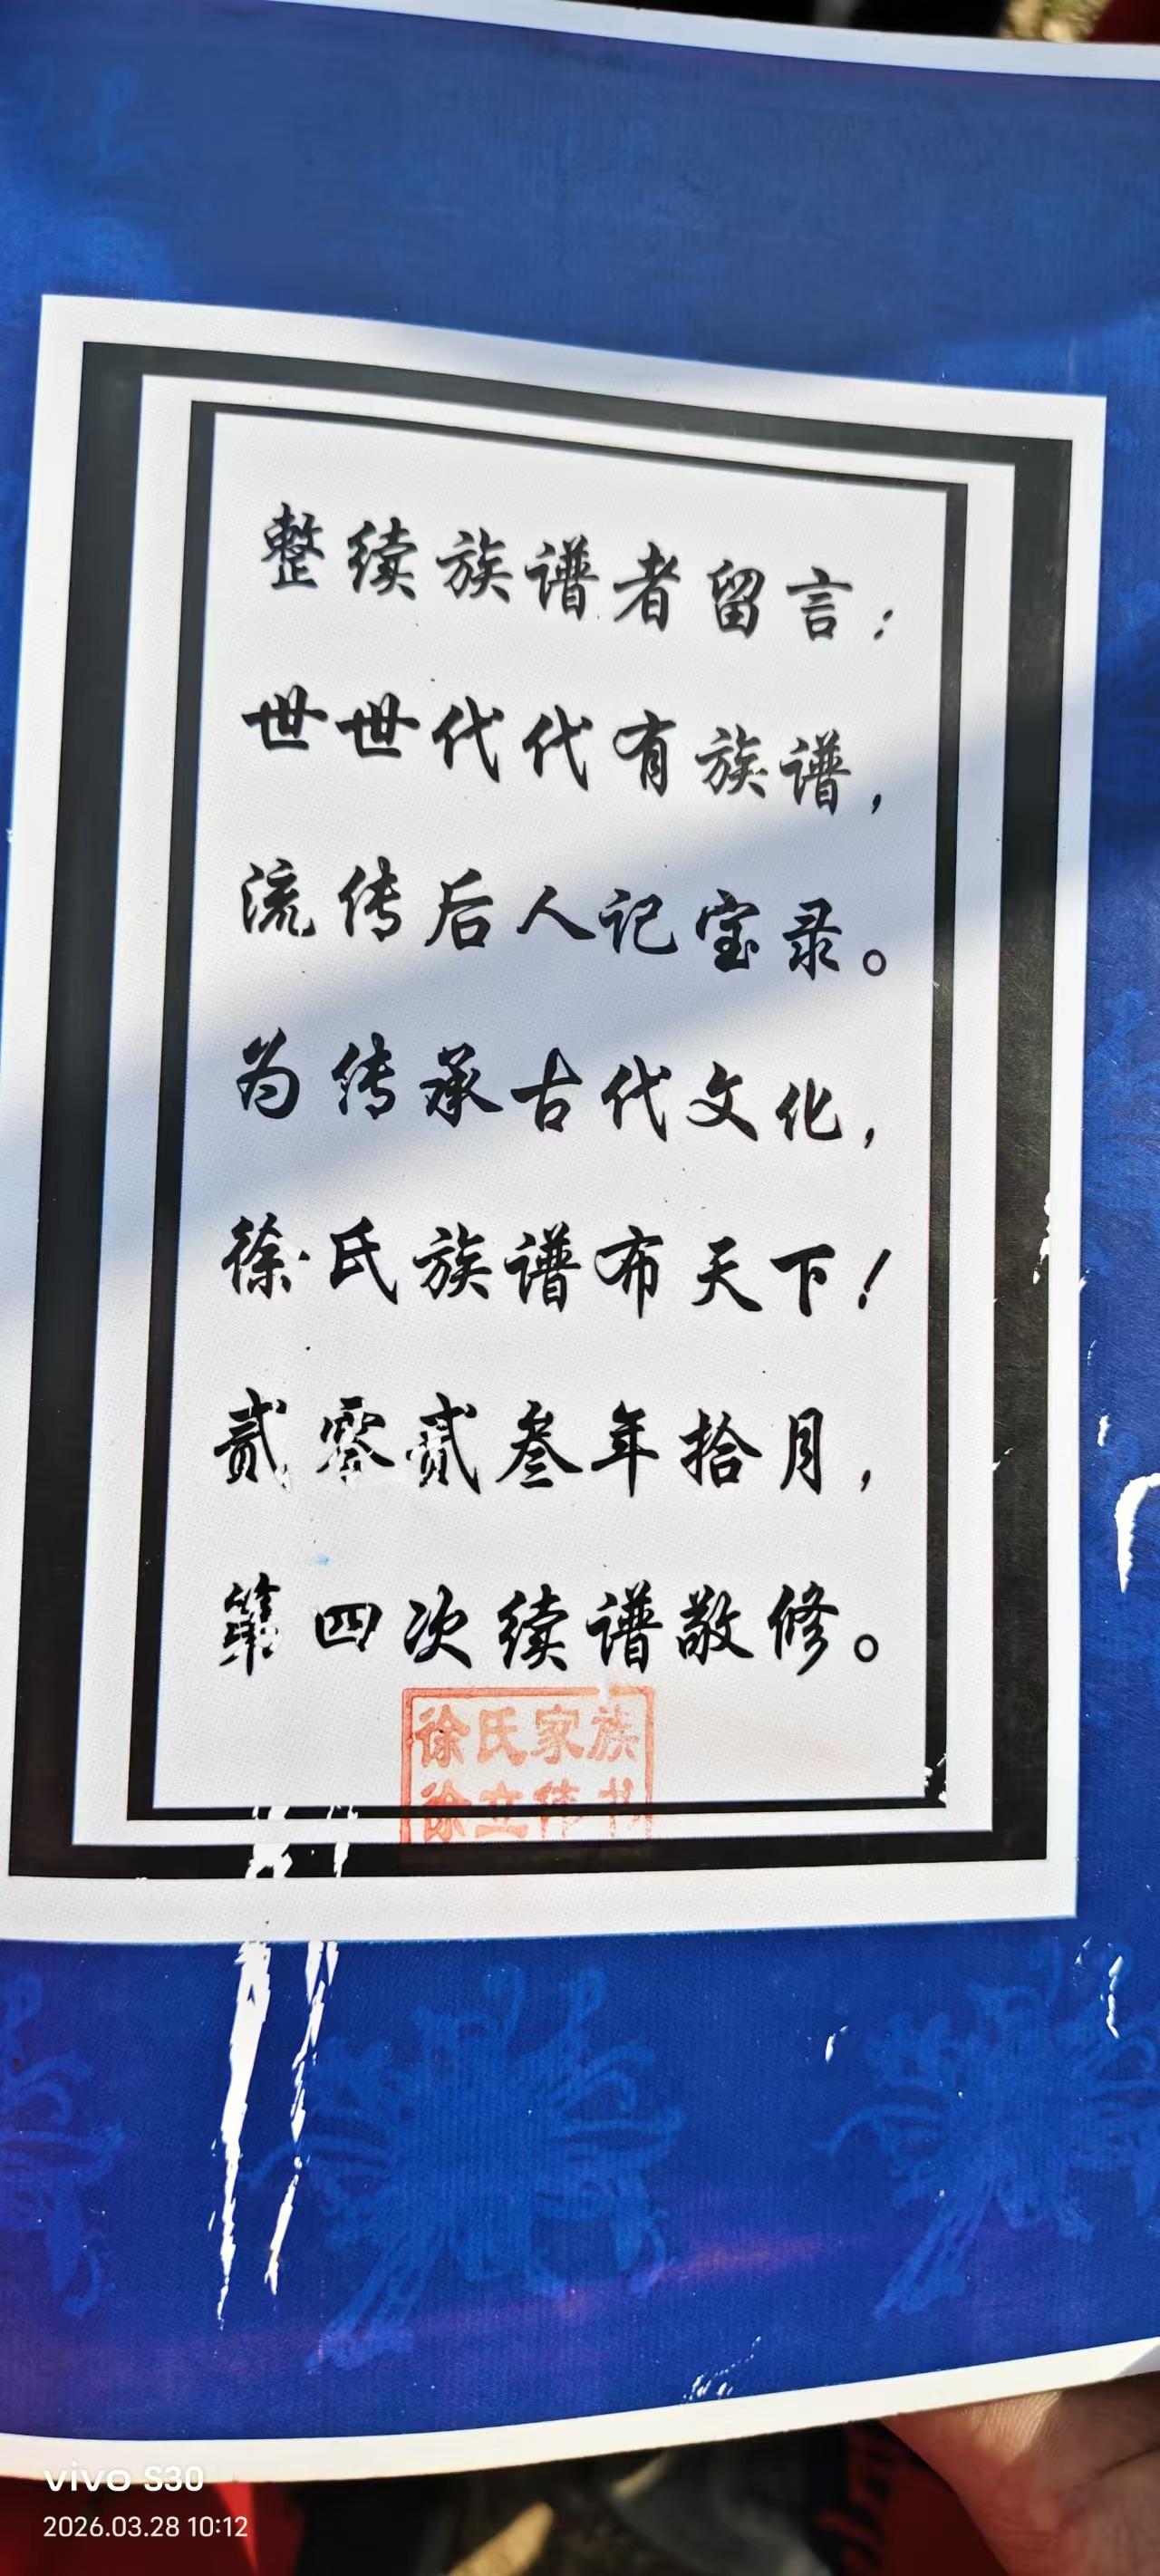 整续族谱者留言：
世世代代有族谱，
流传后人记宝录。
为传承古代文化，
徐氏族谱布天下！
贰零贰叁年拾月，
第四次续谱敬修。
徐氏家族
徐立伟
vivo S30
2026.03.28 10:12